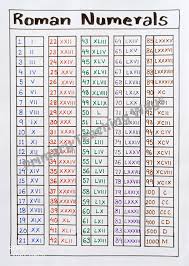 Roman Numerals
1 I 22 XXII 43 XLIII 64 LXIV 85 LXXXV
2 II 23 XXIII 44 XLIV 65 LXV 86 LXXXVI
3 III 24 XXIV 45 XLV 66 LXVI 87 LXXXVII
4 IV 25 XXV 46 XLVI 67 LXVII 88 LXXXVIII
5 V 26 XXVI 47 XLVII 68 LXVIII 89 LXXXIX
6 VI 27 XXVII 48 XLVIII 69 LXIX 90 XC
7 VII 28 XXVIII 49 XLIX 70 LXX 91 XCI
8 VIII 29 XXIX 50 L 71 LXXI 92 XCII
9 IX 30 XXX 51 LI 72 LXXII 93 XCIII
10 X 31 XXXI 52 LII 73 LXXIII 94 XCIV
11 XI 32 XXXII 53 LIII 74 LXXIV 95 XCV
12 XII 33 XXXIII 54 LIV 75 LXXV 96 XCVI
13 XIII 34 XXXIV 55 LV 76 LXXVI 97 XCVII
14 XIV 35 XXXV 56 LVI 77 LXXVII 98 XCVIII
15 XV 36 XXXVI 57 LVII 78 LXXVIII 99 XCIX
16 XVI 37 XXXVII 58 LVIII 79 LXXIX 100 C
17 XVII 38 XXXVIII 59 LIX 80 LXXX 200 CC
18 XVIII 39 XXXIX 60 LX 81 LXXXI 300 CCC
19 XIX 40 XL 61 LXI 82 LXXXII 400 CD
20 XX 41 XLI 62 LXII 83 LXXXIII 500 D
21 XXI 42 XLII 63 LXIII 84 LXXXIV 1000 M